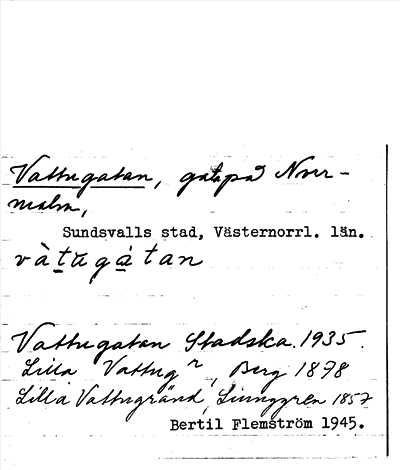 Vattugatan, gata på Norr-
malm,
Sundsvalls stad, Västernorrl. län.
và̀tu̇gátan
Vattugatan Stadska. 1935.
Lilla Vattug:n, Berg 1878
Lilla Vattugränd, Linnggren 1857
Bertil Flemström 1945.